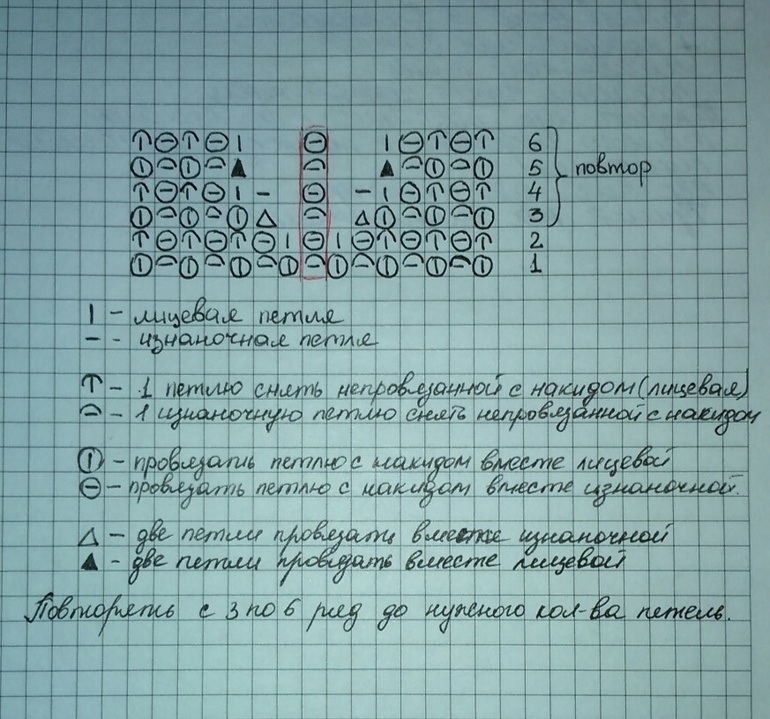 ↑ ⊖ ↑ ⊖ | ⊖ | ⊖ ↑ ⊖ ↑ 6
⦶ ⌒ ⦶ ⌒ ▲ ⌒ ▲ ⌒ ⦶ ⌒ ⦶ 5 повтор
↑ ⊖ ↑ ⊖ | – ⊖ – | ⊖ ↑ ⊖ ↑ 4
⦶ ⌒ ⦶ ⌒ ⦶ △ ⌒ △ ⦶ ⌒ ⦶ ⌒ ⦶ 3
↑ ⊖ ↑ ⊖ ↑ ⊖ | ⊖ | ⊖ ↑ ⊖ ↑ ⊖ ↑ 2
⦶ ⌒ ⦶ ⌒ ⦶ ⌒ ⦶ ⌒ ⦶ ⌒ ⦶ ⌒ ⦶ ⌒ ⦶ 1
| – лицевая петля
– - изнаночная петля
↑ – 1 петлю снять непровязанной с накидом (лицевая)
⌒ – 1 изнаночную петлю снять непровязанной с накидом
⦶ – провязать петлю с накидом вместе лицевой
⊖ – провязать петлю с накидом вместе изнаночной.
△ – две петли провязать вместе изнаночной
▲ – две петли провязать вместе лицевой
Повторять с 3 по 6 ряд до нужного кол-ва петель.